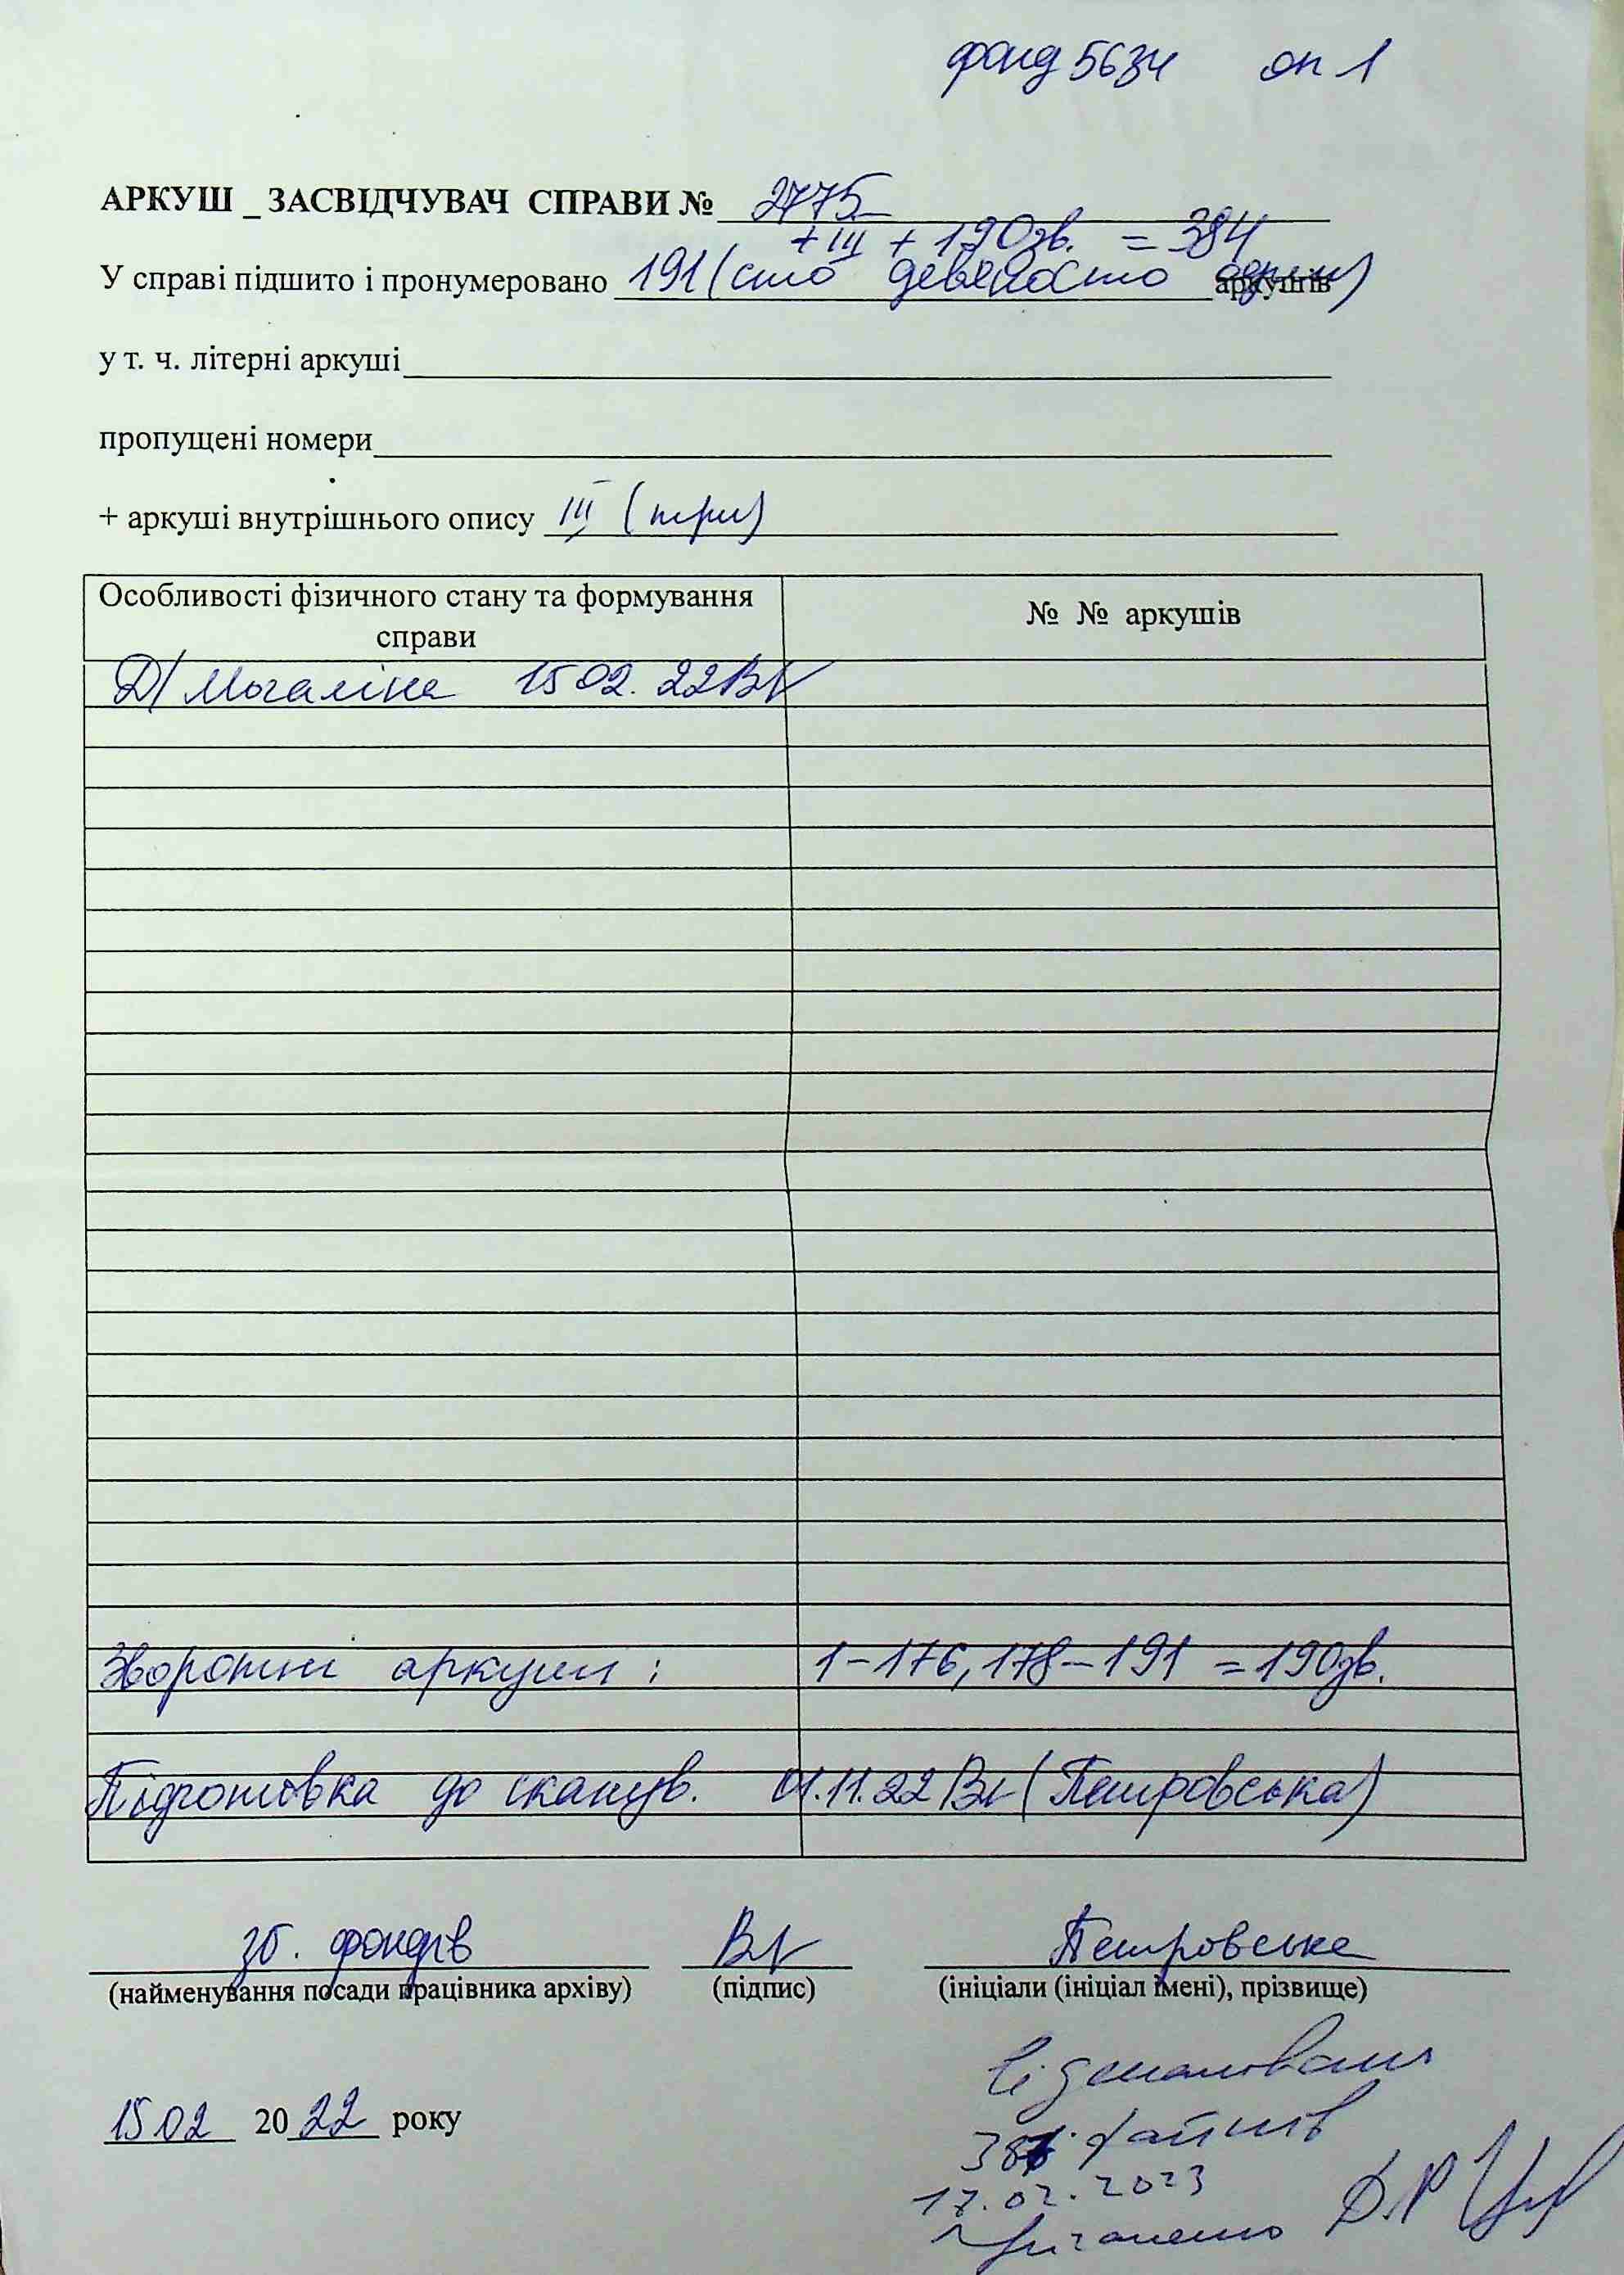 фонд 5634 оп 1
АРКУШ _ ЗАСВІДЧУВАЧ СПРАВИ № 2775
+ III + 190 зв. = 384
У справі підшито і пронумеровано 191 (сто девяносто один) аркушів
у т. ч. літерні аркуші
пропущені номери
+ аркуші внутрішнього опису III (три)
Особливості фізичного стану та формування справи
№ № аркушів
15 02. 22
Зворотні аркуші : 1-176, 178-191 = 190 зв.
Підготовка до сканув. 01.11.22 (Петровська)
зб. фондів Петровська
(найменування посади працівника архіву) (підпис) (ініціали (ініціал імені), прізвище)
15 02 2022 року
Відскановано
файлів
17.02.2023